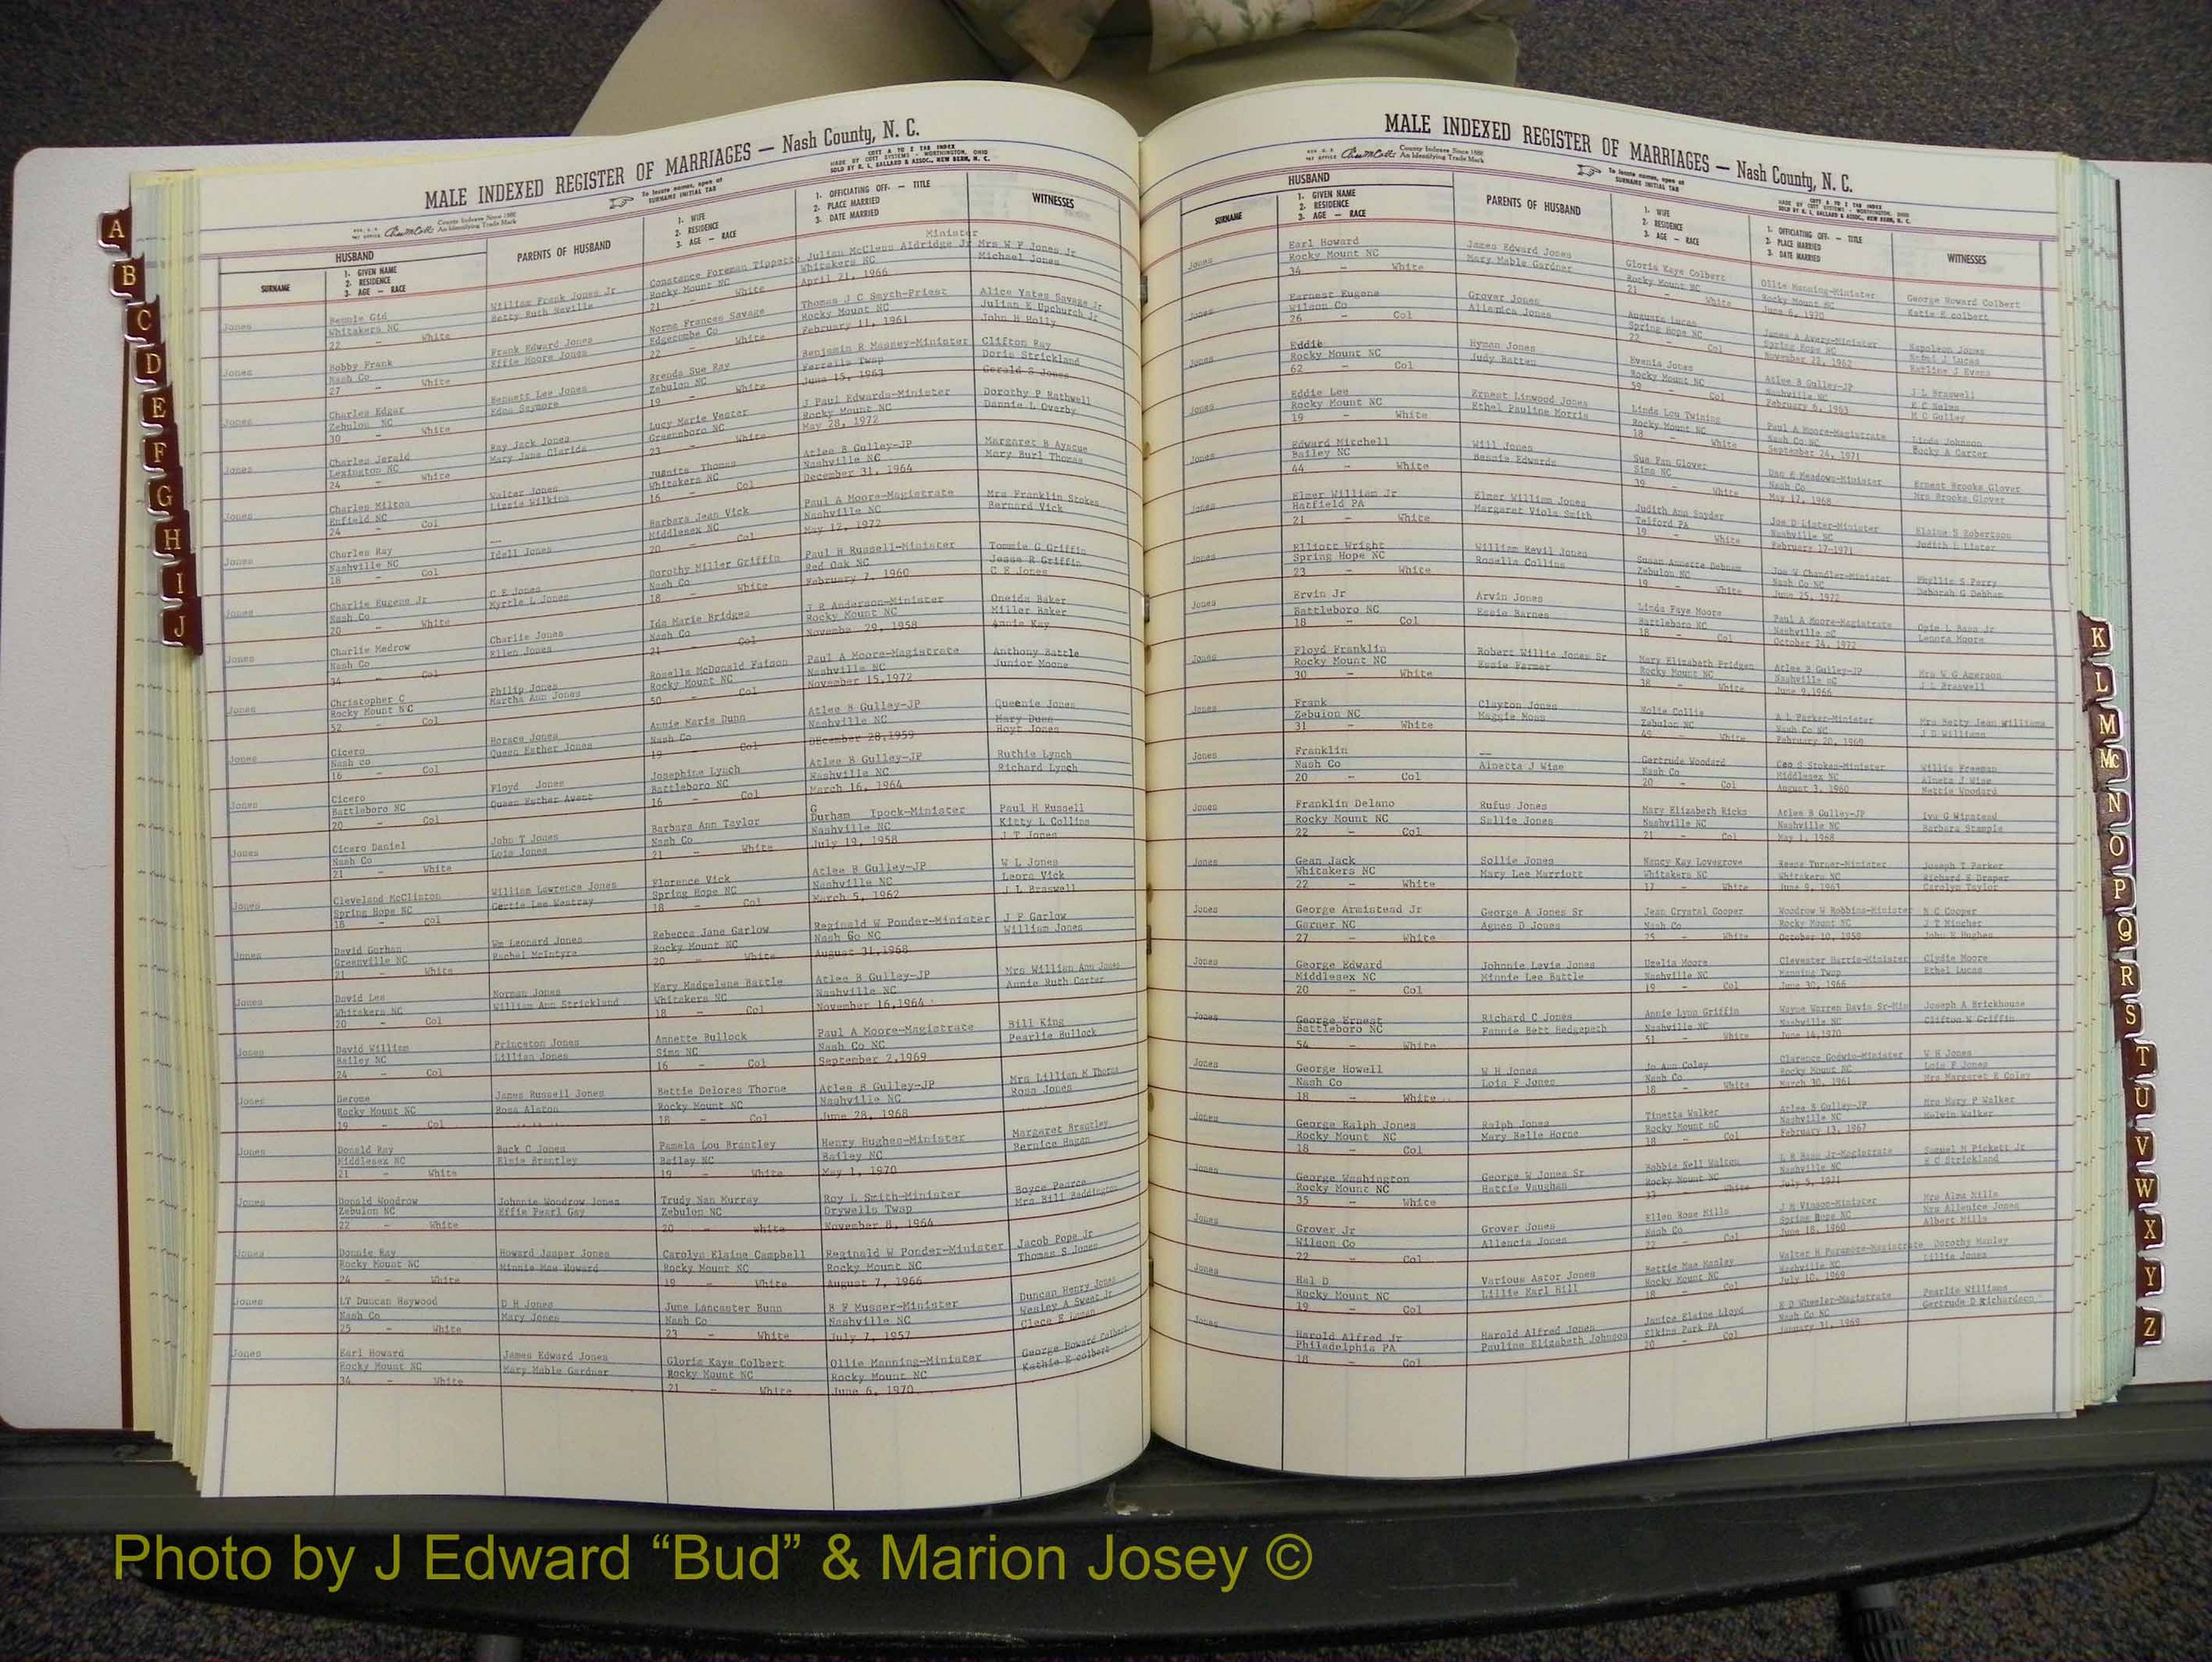 MALE INDEXED REGISTER OF MARRIAGES — Nash County, N. C.
County Indexes Since 1888
An Identifying Trade Mark
To locate names, open at
SURNAME INITIAL TAB
COTT A TO Z TAB INDEX
MADE BY COTT SYSTEMS - WORTHINGTON, OHIO
SOLD BY O. L. BALLARD & ASSOC., NEW BERN, N. C.
HUSBAND
SURNAME
1. GIVEN NAME
2. RESIDENCE
3. AGE — RACE
PARENTS OF HUSBAND
1. WIFE
2. RESIDENCE
3. AGE — RACE
1. OFFICIATING OFF. — TITLE
2. PLACE MARRIED
3. DATE MARRIED
WITNESSES
Minister
Jones Bennie Gid William Frank Jones Jr Constance Foreman Tippette Julian McClenn Aldridge Jr Mrs W F Jones Jr
Whitakers NC Betty Ruth Neville Rocky Mount NC Whitakers NC Michael Jones
22 - White 21 - White April 21, 1966
Jones Bobby Frank Frank Edward Jones Norma Frances Savage Thomas J C Smyth-Priest Alice Yates Savage Jr
Nash Co Effie Moore Jones Edgecombe Co Rocky Mount NC Julian E Upchurch Jr
27 - White 22 - White February 11, 1961 John H Holly
Jones Charles Edgar Bennett Lee Jones Brenda Sue Ray Benjamin R Massey-Minister Clifton Ray
Zebulon NC Edna Seymore Zebulon NC Ferrells Twsp Doris Strickland
30 - White 19 - White June 15, 1963 Gerald S Jones
Jones Charles Jerald Ray Jack Jones Lucy Marie Vester J Paul Edwards-Minister Dorothy P Rathwell
Lexington NC Mary Jane Clarida Greensboro NC Rocky Mount NC Dannie L Overby
24 - White 23 - White May 28, 1972
Jones Charles Milton Walter Jones Juanita Thomas Atlee B Gulley-JP Margaret B Aycocue
Enfield NC Lizzie Wilkins Whitakers NC Nashville NC Mary Burl Thomas
24 - Col 16 - Col December 31, 1964
Jones Charles Ray — Barbara Jean Vick Paul A Moore-Magistrate Mrs Franklin Stokes
Nashville NC Idell Jones Middlesex NC Nashville NC Bernard Vick
18 - Col 20 - Col May 12, 1972
Jones Charlie Eugene Jr C E Jones Dorothy Miller Griffin Paul H Russell-Minister Tommie G Griffin
Nash Co Myrtle L Jones Nash Co Red Oak NC Jesse R Griffin
20 - White 18 - White February 7, 1960 C E Jones
Jones Charlie Medrow Charlie Jones Ida Marie Bridges J R Anderson-Minister Oneida Baker
Nash Co Ellen Jones Nash Co Rocky Mount NC Miller Baker
34 - Col 21 - Col Novembe 29, 1958 Annie Kay
Jones Christopher C Philip Jones Rosells McDonald Faison Paul A Moore-Magistrate Anthony Battle
Rocky Mount NC Martha Ann Jones Rocky Mount NC Nashville NC Junior Moone
52 - Col 50 - Col November 15,1972
Jones Cicero Horace Jones Annie Marie Dunn Atlee B Gulley-JP Queenie Jones
Nash co Queen Esther Jones Nash Co Nashville NC Mary Dunn
16 - Col 19 - Col DEcember 28,1959 Hoyt Jones
Jones Cicero Floyd Jones Josephine Lynch Atlee B Gulley-JP Ruthie Lynch
Battleboro NC Queen Esther Avent Battleboro NC Nashville NC Richard Lynch
20 - Col 16 - Col March 16, 1964
Jones Cicero Daniel John T Jones Barbara Ann Taylor G Durham Ipock-Minister Paul H Russell
Nash Co Lois Jones Nash Co Nashville NC Kitty L Collins
21 - White 21 - White July 19, 1958 J T Jones
Jones Cleveland McClinton William Lawrence Jones Florence Vick Atlee B Gulley-JP W L Jones
Spring Hope NC Gertie Lee Westray Spring Hope NC Nashville NC Leora Vick
18 - Col 18 - Col March 5, 1962 J L Braswell
Jones David Gorham Wm Leonard Jones Rebecca Jane Garlow Reginald W Ponder-Minister J F Garlow
Greenville NC Rachel McIntyre Rocky Mount NC Nash Co NC William Jones
21 - White 20 - White August 31,1968
Jones David Lee Norman Jones Mary Madgelene Battle Atlee B Gulley-JP Mrs Willian Ann Jones
Whitakers NC Willian Ann Strickland Whitakers NC Nashville NC Annie Ruth Carter
20 - Col 18 - Col November 16,1964
Jones David William Princeton Jones Annette Bullock Paul A Moore-Magistrate Bill King
Bailey NC Lillian Jones Sims NC Nash Co NC Pearlie Bullock
24 - Col 16 - Col September 2,1969
Jones Derome James Russell Jones Bettie Delores Thorne Atlee B Gulley-JP Mrs Lillian K Thorne
Rocky Mount NC Rosa Alston Rocky Mount NC Nashville NC Rosa Jones
19 - Col 18 - Col June 28, 1968
Jones Donald Ray Buck C Jones Pamela Lou Brantley Henry Hughes-Minister Margaret Brantley
Middlesex NC Elsie Brantley Bailey NC Bailey NC Bernice Hagan
21 - White 19 - White May 1, 1970
Jones Donald Woodrow Johnnie Woodrow Jones Trudy Nan Murray Roy L Smith-Minister Boyce Pearce
Zebulon NC Effie Pearl Gay Zebulon NC Drywells Twsp Mrs Bill Baddington
22 - White 20 - white November 8, 1964
Jones Donnie Ray Howard Jasper Jones Carolyn Elaine Campbell Reginald W Ponder-Minister Jacob Pope Jr
Rocky Mount NC Minnie Mae Howard Rocky Mount NC Rocky Mount NC Thomas S Jones
24 - White 19 - White August 7, 1966
Jones LT Duncan Haywood D H Jones June Lancaster Bunn B F Musser-Minister Duncan Henry Jones
Nash Co Mary Jones Nash Co Nashville NC Wesley A Sweat Jr
25 - White 23 - White July 7, 1957
Jones Earl Howard James Edward Jones Gloria Kaye Colbert Ollie Manning-Minister George Howard Colbert
Rocky Mount NC Mary Mable Gardner Rocky Mount NC Rocky Mount NC Kathie E colbert
34 - White 21 - White June 6, 1970
MALE INDEXED REGISTER OF MARRIAGES — Nash County, N. C.
County Indexes Since 1888
An Identifying Trade Mark
To locate names, open at
SURNAME INITIAL TAB
COTT A TO Z TAB INDEX
MADE BY COTT SYSTEMS - WORTHINGTON, OHIO
SOLD BY O. L. BALLARD & ASSOC., NEW BERN, N. C.
HUSBAND
SURNAME
1. GIVEN NAME
2. RESIDENCE
3. AGE — RACE
PARENTS OF HUSBAND
1. WIFE
2. RESIDENCE
3. AGE — RACE
1. OFFICIATING OFF. — TITLE
2. PLACE MARRIED
3. DATE MARRIED
WITNESSES
Jones Earl Howard James Edward Jones Gloria Kaye Colbert Ollie Manning-Minister George Howard Colbert
Rocky Mount NC Mary Mable Gardner Rocky Mount NC Rocky Mount NC Katie E colbert
34 - White 21 - White June 6, 1970
Jones Earnest Eugene Grover Jones Augusta Lucas James A Avery-Minister Napoleon Jones
Wilson Co Allenica Jones Spring Hope NC Spring Hope NC Lucas
26 - Col 22 - Col November 22, 1962 Earline J Evans
Jones Eddie Hyman Jones Evenia Jones Atlee B Gulley-JP J L Braswell
Rocky Mount NC Judy Batten Rocky Mount NC Nashville NC
62 - Col 59 - Col February 6, 1963 Gulley
Jones Eddie Lee Ernest Linwood Jones Linda Lou Twining Paul A Moore-Magistrate Linda Johnson
Rocky Mount NC Ethel Pauline Morris Rocky Mount NC Nash Co NC Rocky A Carter
19 - White 18 - White September 24, 1971
Jones Edward Mitchell Will Jones Sue Fan Glover Dan E Meadows-Minister Ernest Brooks Glover
Bailey NC Bessie Edwards Sims NC Nash Co Mrs Brooks Glover
44 - White 39 - White May 12, 1968
Jones Elmer William Jr Elmer William Jones Judith Ann Snyder Joe D Lister-Minister Elaine S Robertson
Hatfield PA Margaret Viola Smith Telford PA Nashville NC Judith L Lister
21 - White 19 - White February 17-1971
Jones Elliott Wright William Revil Jones Susan Annette Debnam Joe W Chandler-Minister Phyllis S Perry
Spring Hope NC Rosella Collins Zebulon NC Nash Co NC Deborah G Debham
23 - White 19 - White June 25, 1972
Jones Ervin Jr Arvin Jones Linda Faye Moore Paul A Moore-Magistrate Opie L Bass Jr
Battleboro NC Essie Barnes Battleboro NC Nashville NC Lenora Moore
18 - Col 18 - Col October 24, 1972
Jones Floyd Franklin Robert Willie Jones Sr Mary Elizabeth Pridgen Atlee B Gulley-JP Mrs W G Amerson
Rocky Mount NC Essie Farmer Rocky Mount NC Nashville NC J L Braswell
30 - White 38 - White June 9,1966
Jones Frank Clayton Jones Nolie Collie A L Parker-Minister Mrs Betty Jean Williams
Zebulon NC Maggie Moss Zebulon NC Nash Co NC J D Williams
31 - White 45 - White February 20, 1969
Jones Franklin — Gertrude Woodard Geo S Stokes-Minister Willie Freeman
Nash Co Alnetta J Wise Nash Co Middlesex NC Alneta J Wise
20 - Col 20 - Col August 3, 1960 Nettie Woodard
Jones Franklin Delano Rufus Jones Mary Elizabeth Ricks Atlee B Gulley-JP Iva G Winstead
Rocky Mount NC Sallie Jones Nashville NC Nashville NC Barbara Stample
22 - Col 21 - Col May 1, 1968
Jones Gean Jack Sollie Jones Nancy Kay Lovegrove Reese Turner-Minister Joseph T Parker
Whitakers NC Mary Lee Marriott Whitakers NC Whitakers NC Richard E Draper
22 - White 17 - White June 9, 1963 Carolyn Taylor
Jones George Armistead Jr George A Jones Sr Jean Crystal Cooper Woodrow W Robbins-Minister N C Cooper
Garner NC Agnes D Jones Nash Co Rocky Mount NC J T Mincher
27 - White 25 - White October 10, 1958 John E Hughes
Jones George Edward Johnnie Lavie Jones Uzelia Moore Clevester Harris-Minister Clydie Moore
Middlesex NC Minnie Lee Battle Nashville NC Manning Twsp Ethel Lucas
20 - Col 19 - Col June 30, 1966
Jones George Ernest Richard C Jones Annie Lynn Griffin Wayne Warren Davis Sr-Min Joseph A Brickhouse
Battleboro NC Fannie Bett Hedgepeth Nashville NC Nashville NC Clifton W Griffin
54 - White 51 - White June 14,1970
Jones George Howell W H Jones Jo Ann Coley Clarence Godwin-Minister W H Jones
Nash Co Lois F Jones Nash Co Rocky Mount NC Lois F Jones
18 - White 18 - White March 30, 1961 Mrs Margaret K Coley
Jones George Ralph Jones Ralph Jones Tinetta Walker Atlee B Gulley-JP Mrs Mary P Walker
Rocky Mount NC Mary Belle Horne Rocky Mount NC Nashville NC Melvin Walker
18 - Col 18 - Col February 13, 1967
Jones George Washington George W Jones Sr Bobbie Nell Walton L R Bass Jr-Magistrate Samuel M Pickett Jr
Rocky Mount NC Hattie Vaughan Rocky Mount NC Nashville NC E C Strickland
35 - White 33 - White July 5, 1971
Jones Grover Jr Grover Jones Ellen Rose Mills J M Vinson-Minister Mrs Alma Mills
Wilson Co Allencia Jones Nash Co Spring Hope NC Mrs Allenice Jones
22 - Col 22 - Col June 18, 1960 Albert Mills
Jones Hal D Various Astor Jones Bettie Mae Manley Walter H Paramore-Magistrate Dorothy Manley
Rocky Mount NC Lillie Earl Hill Rocky Mount NC Nashville NC Lillie Jones
19 - Col 18 - Col July 10, 1969
Jones Harold Alfred Jr Harold Alfred Jones Janice Elaine Lloyd E D Wheeler-Magistrate Pearlie Williams
Philadelphia PA Pauline Elizabeth Johnson Elkins Park PA Nash Co NC Gertrude D Richardson
18 - Col 20 - Col January 31, 1969
A
B
C
D
E
F
G
H
I
J
K
L
M
Mc
N
O
P
Q
R
S
T
U
V
W
X
Y
Z
Photo by J Edward “Bud” & Marion Josey ©